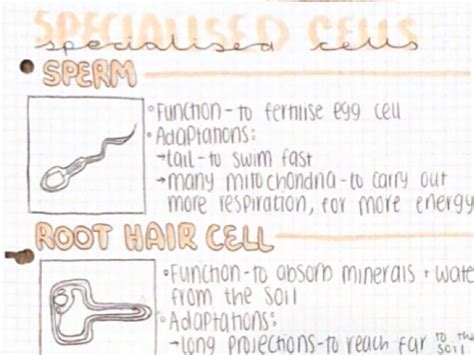 SPECIALISED CELLS
specialised cells
SPERM
Function - to fertilise egg cell
Adaptations:
→tail - to swim fast
→many mitochondria - to carry out
more respiration, for more energy
ROOT HAIR CELL
Function - to absorb minerals + water
from the soil
Adaptations:
→long projections - to reach far to the soil